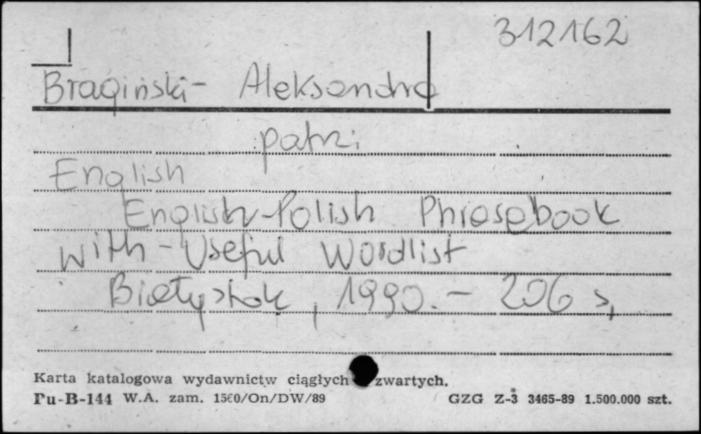 312162
Bragiński- Aleksandra
patrz:
English
English-Polish Phrasebook
with - Useful Wordlist
Białystok, 1990. - 206 s,
Karta katalogowa wydawnictw ciągłych zwartych.
Pu-B-144 W.A. zam. 1560/On/DW/89 GZG Z-3 3465-89 1.500.000 szt.